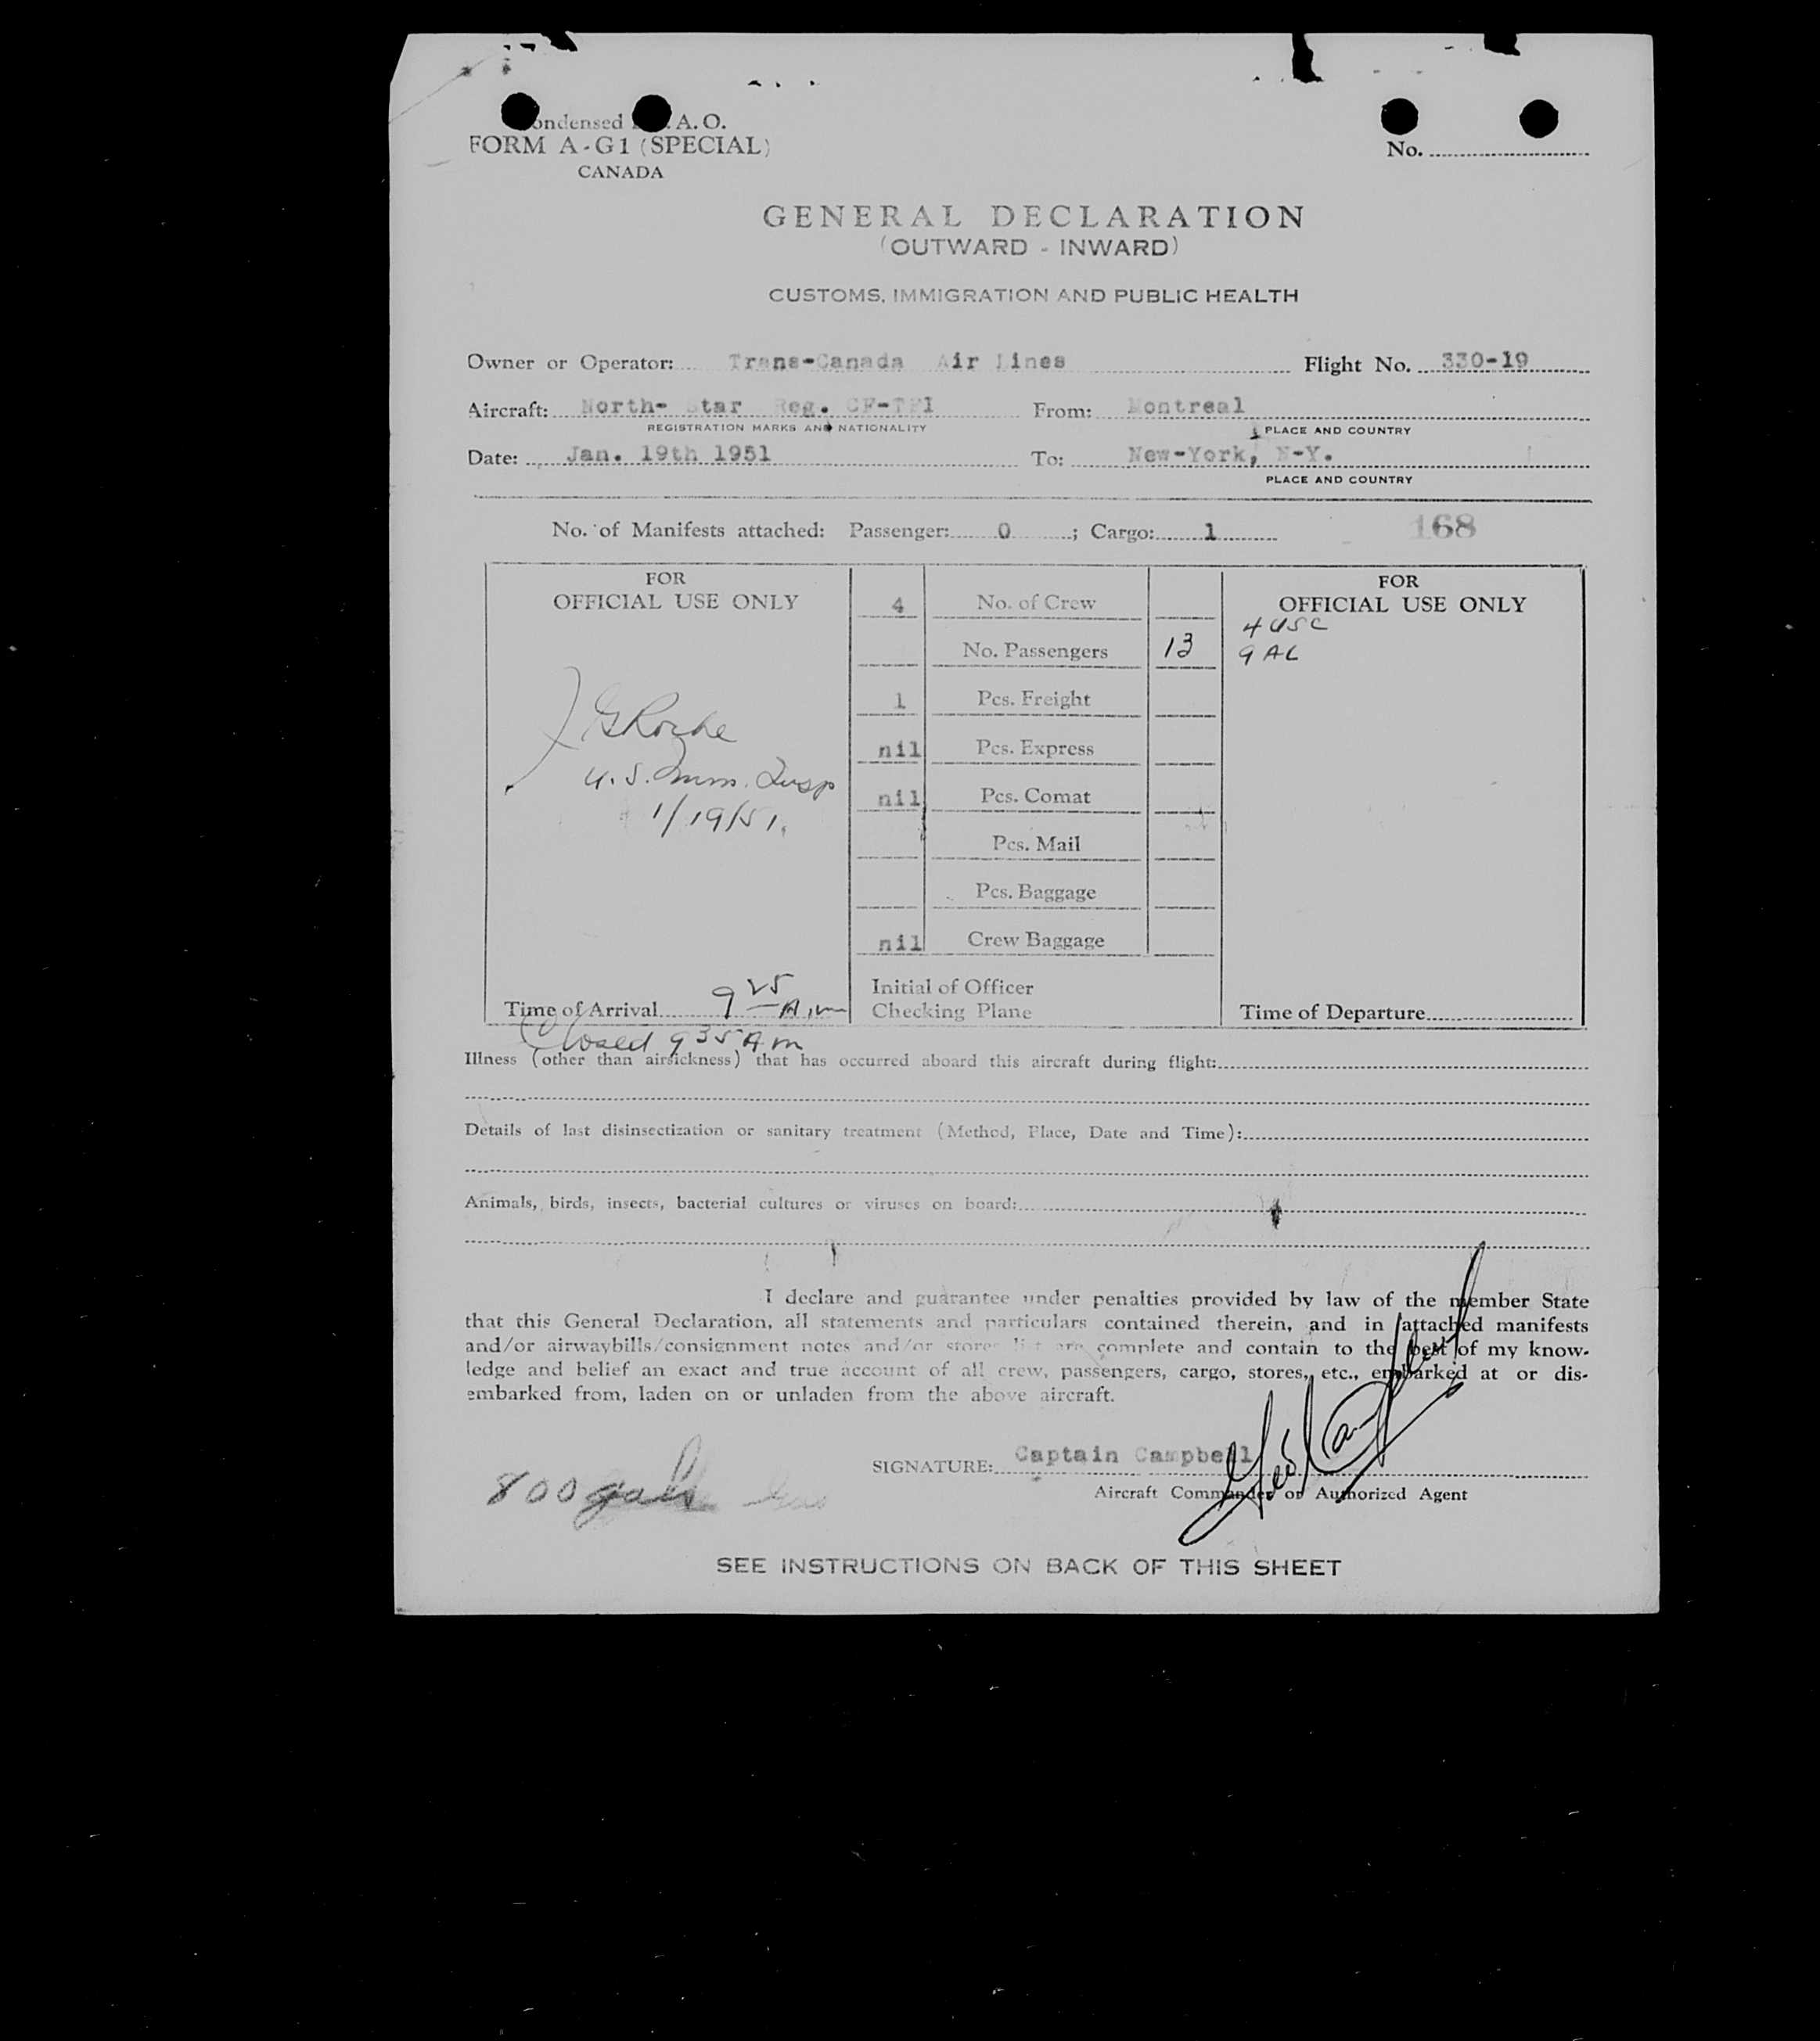 ondensed A. O.
FORM A-G1 (SPECIAL)
CANADA
No.
GENERAL DECLARATION
(OUTWARD - INWARD)
CUSTOMS, IMMIGRATION AND PUBLIC HEALTH
Owner or Operator: Trans-Canada Air Lines Flight No. 330-19
Aircraft: North- Star Reg. From: Montreal
REGISTRATION MARKS AND NATIONALITY PLACE AND COUNTRY
Date: Jan. 19th 1951 To: New-York, N-Y.
PLACE AND COUNTRY
No. of Manifests attached: Passenger: 0 ; Cargo: 1 168
FOR
OFFICIAL USE ONLY
4 No. of Crew
No. Passengers 13
1 Pcs. Freight
nil Pcs. Express
nil Pcs. Comat
Pcs. Mail
Pcs. Baggage
nil Crew Baggage
Initial of Officer
Checking Plane
U.S. Imm. Insp
1/19/51.
Time of Arrival 9 25 A.m
Closed 9 35 A m
FOR
OFFICIAL USE ONLY
4 USC
9 AL
Time of Departure
Illness (other than airsickness) that has occurred aboard this aircraft during flight:
Details of last disinsectization or sanitary treatment (Method, Place, Date and Time):
Animals, birds, insects, bacterial cultures or viruses on board:
I declare and guarantee under penalties provided by law of the member State
that this General Declaration, all statements and particulars contained therein, and in attached manifests
and/or airwaybills/consignment notes and/or stores list are complete and contain to the best of my know-
ledge and belief an exact and true account of all crew, passengers, cargo, stores, etc., embarked at or dis-
embarked from, laden on or unladen from the above aircraft.
SIGNATURE: Captain Campbell
Aircraft Commander or Authorized Agent
800 gals
SEE INSTRUCTIONS ON BACK OF THIS SHEET